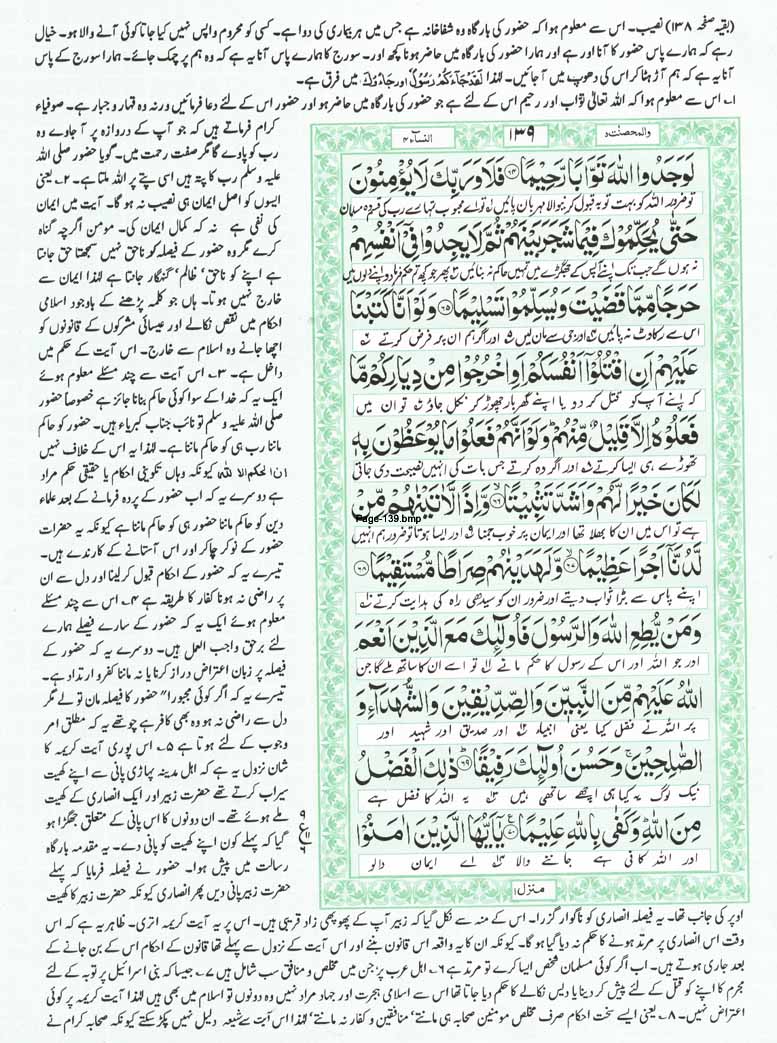 (بقیہ صفحہ ۱۳۸) نصیب۔ اس سے معلوم ہوا کہ حضور کی بارگاہ وہ شفاخانہ ہے جس میں ہر بیماری کی دوا ہے۔ کسی کو محروم واپس نہیں کیا جاتا کوئی آنے والا ہو۔ خیال
رہے کہ ہمارے پاس حضور کا آنا اور ہے اور ہمارا حضور کی بارگاہ میں حاضر ہونا کچھ اور۔ سورج کا ہمارے پاس آنا یہ ہے کہ وہ ہم پر چمک جائے۔ ہمارا سورج کے پاس
آنا یہ ہے کہ ہم آڑ ہٹا کر اس کی دھوپ میں آ جائیں۔ لہٰذا لَقَدْ جَآءَكُمْ رَسُوْلٌ اور جَآءُوْكَ میں فرق ہے۔
۱۔ اس سے معلوم ہوا کہ اللہ تعالیٰ توّاب اور رحیم اس کے لئے ہے جو حضور کی بارگاہ میں حاضر ہو اور حضور اس کے لئے دعا فرمائیں ورنہ وہ قہار و جبار ہے۔ صوفیاء
کرام فرماتے ہیں کہ جو آپ کے دروازہ پر آ جاوے وہ
رب کو پاوے گا مگر صفت رحمت میں۔ گویا حضور صلی اللہ
علیہ و سلم رب کا پتہ ہیں اسی پتے پر اللہ ملتا ہے۔ ۲۔ یعنی
ایسوں کو اصل ایمان ہی نصیب نہ ہو گا۔ آیت میں ایمان
کی نفی ہے نہ کہ کمال ایمان کی۔ مومن اگرچہ گناہ
کرے مگر وہ حضور کے فیصلہ کو ناحق نہیں سمجھتا حق جانتا
ہے اپنے کو ناحق، ظالم، گنہگار جانتا ہے لہٰذا ایمان سے
خارج نہیں ہوتا۔ ہاں جو کلمہ پڑھنے کے باوجود اسلامی
احکام میں نقص نکالے اور عیسائی مشرکوں کے قانونوں کو
اچھا جانے وہ اسلام سے خارج۔ اس آیت کے حکم میں
داخل ہے۔ ۳۔ اس آیت سے چند مسئلے معلوم ہوئے
ایک یہ کہ خدا کے سوا کوئی حاکم بنانا جائز ہے خصوصاً حضور
صلی اللہ علیہ و سلم تو نائب جناب کبریاء ہیں۔ حضور کو حاکم
ماننا رب ہی کو حاکم ماننا ہے۔ لہٰذا یہ اس کے خلاف نہیں
ان الحکم الا للہ کیونکہ وہاں تکوینی احکام یا حقیقی حکم مراد
ہے دوسرے یہ کہ اب حضور کے پردہ فرمانے کے بعد علماء
دین کو حاکم ماننا حضور ہی کو حاکم ماننا ہے کیونکہ یہ حضرات
حضور کے نوکر چاکر اور اس آستانے کے کارندے ہیں۔
تیسرے یہ کہ حضور کے احکام قبول کر لینا اور دل سے ان
پر راضی نہ ہونا کفار کا طریقہ ہے ۴۔ اس سے چند مسئلے
معلوم ہوئے ایک یہ کہ حضور کے سارے فیصلے ہمارے
لئے برحق واجب العمل ہیں۔ دوسرے یہ کہ حضور کے
فیصلہ پر زبان اعتراض دراز کرنا یا نہ ماننا کفر و ارتداد ہے۔
تیسرے یہ کہ اگر کوئی مجبوراً حضور کا فیصلہ مان تو لے مگر
دل سے راضی نہ ہو وہ بھی کافر ہے چوتھے یہ کہ مطلق امر
وجوب کے لئے ہوتا ہے ۵۔ اس پوری آیت کریمہ کا
شان نزول یہ ہے کہ اہل مدینہ پہاڑی پانی سے اپنے کھیت
سیراب کرتے تھے حضرت زبیر اور ایک انصاری کے کھیت
ملے ہوئے تھے۔ ان دونوں کا اس پانی کے متعلق جھگڑا ہو
گیا کہ پہلے کون اپنے کھیت کو پانی دے۔ یہ مقدمہ بارگاہ
رسالت میں پیش ہوا۔ حضور نے فیصلہ فرمایا کہ پہلے
حضرت زبیر پانی دیں پھر انصاری کیونکہ حضرت زبیر کا کھیت
والمحصنت ۵
۱۳۹
النساء ۴
لَوَجَدُوا اللّٰهَ تَوَّابًا رَّحِيْمًا ۶۴ فَلَا وَرَبِّكَ لَا يُؤْمِنُوْنَ
تو ضرور اللہ کو بہت توبہ قبول کرنیوالا مہربان پائیں تو اے محبوب تمہارے رب کی قسم وہ مسلمان
حَتّٰى يُحَكِّمُوْكَ فِيْمَا شَجَرَ بَيْنَهُمْ ثُمَّ لَا يَجِدُوْا فِيْۤ اَنْفُسِهِمْ
نہ ہوں گے جب تک اپنے آپس کے جھگڑے میں تمہیں حاکم نہ بنائیں پھر جو کچھ تم حکم فرما دو اپنے دلوں میں
حَرَجًا مِّمَّا قَضَيْتَ وَيُسَلِّمُوْا تَسْلِيْمًا ۶۵ وَلَوْ اَنَّا كَتَبْنَا
اس سے رکاوٹ نہ پائیں اور جی سے مان لیں اور اگر ہم ان پر فرض کرتے
عَلَيْهِمْ اَنِ اقْتُلُوْۤا اَنْفُسَكُمْ اَوِ اخْرُجُوْا مِنْ دِيَارِكُمْ مَّا
کہ اپنے آپ کو قتل کر دو یا اپنے گھر بار چھوڑ کر نکل جاؤ تو ان میں
فَعَلُوْهُ اِلَّا قَلِيْلٌ مِّنْهُمْ وَلَوْ اَنَّهُمْ فَعَلُوْا مَا يُوْعَظُوْنَ بِهٖ
تھوڑے ہی ایسا کرتے اور اگر وہ کرتے جس بات کی انہیں نصیحت دی جاتی
لَكَانَ خَيْرًا لَّهُمْ وَاَشَدَّ تَثْبِيْتًا ۶۶ وَّاِذًا لَّاٰتَيْنٰهُمْ مِّنْ
Page-139.bmp
ہے تو اس میں ان کا بھلا تھا اور ایمان پر خوب جمنا اور ایسا ہوتا تو ضرور ہم انہیں
لَّدُنَّاۤ اَجْرًا عَظِيْمًا ۶۷ وَّلَهَدَيْنٰهُمْ صِرَاطًا مُّسْتَقِيْمًا ۶۸
اپنے پاس سے بڑا ثواب دیتے اور ضرور ان کو سیدھی راہ کی ہدایت کرتے
وَمَنْ يُّطِعِ اللّٰهَ وَالرَّسُوْلَ فَاُولٰٓئِكَ مَعَ الَّذِيْنَ اَنْعَمَ
اور جو اللہ اور اس کے رسول کا حکم مانے تو اسے ان کا ساتھ ملے گا جن
اللّٰهُ عَلَيْهِمْ مِّنَ النَّبِيّٖنَ وَالصِّدِّيْقِيْنَ وَالشُّهَدَآءِ وَ
پر اللہ نے فضل کیا یعنی انبیاء اور صدیق اور شہید اور
الصّٰلِحِيْنَ وَحَسُنَ اُولٰٓئِكَ رَفِيْقًا ۶۹ ذٰلِكَ الْفَضْلُ
نیک لوگ یہ کیا ہی اچھے ساتھی ہیں یہ اللہ کا فضل ہے
مِنَ اللّٰهِ وَكَفٰى بِاللّٰهِ عَلِيْمًا ۷۰ يٰۤاَيُّهَا الَّذِيْنَ اٰمَنُوْا
اور اللہ کافی ہے جاننے والا اے ایمان والو
منزل ۱
اوپر کی جانب تھا۔ یہ فیصلہ انصاری کو ناگوار گزرا۔ اس کے منہ سے نکل گیا کہ زبیر آپ کے پھوپھی زاد قریبی ہیں۔ اس پر یہ آیت کریمہ اتری۔ ظاہر یہ ہے کہ اس
وقت اس انصاری پر مرتد ہونے کا حکم نہ دیا گیا ہو گا۔ کیونکہ ان کا یہ واقعہ اس قانون بننے اور اس آیت کے نزول سے پہلے تھا قانون کے احکام اس کے بن جانے کے
بعد جاری ہوتے ہیں۔ اب اگر کوئی مسلمان شخص ایسا کرے تو مرتد ہے ۶۔ اہل عرب پر جن میں مخلص و منافق سب شامل ہیں ۷۔ جیسا کہ بنی اسرائیل پر توبہ کے لئے
مجرم کا اپنے کو قتل کے لئے پیش کر دینا یا دیس نکالے کا حکم دیا جاتا تھا اس سے اسلامی ہجرت اور جہاد مراد نہیں وہ دونوں تو اسلام میں بھی ہیں لہٰذا آیت کریمہ پر کوئی
اعتراض نہیں۔ ۸۔ یعنی ایسے سخت احکام صرف مخلص مومنین صحابہ ہی مانتے، منافقین و کفار نہ مانتے، لہٰذا اس آیت سے شیعہ دلیل نہیں پکڑ سکتے کیونکہ صحابہ کرام نے